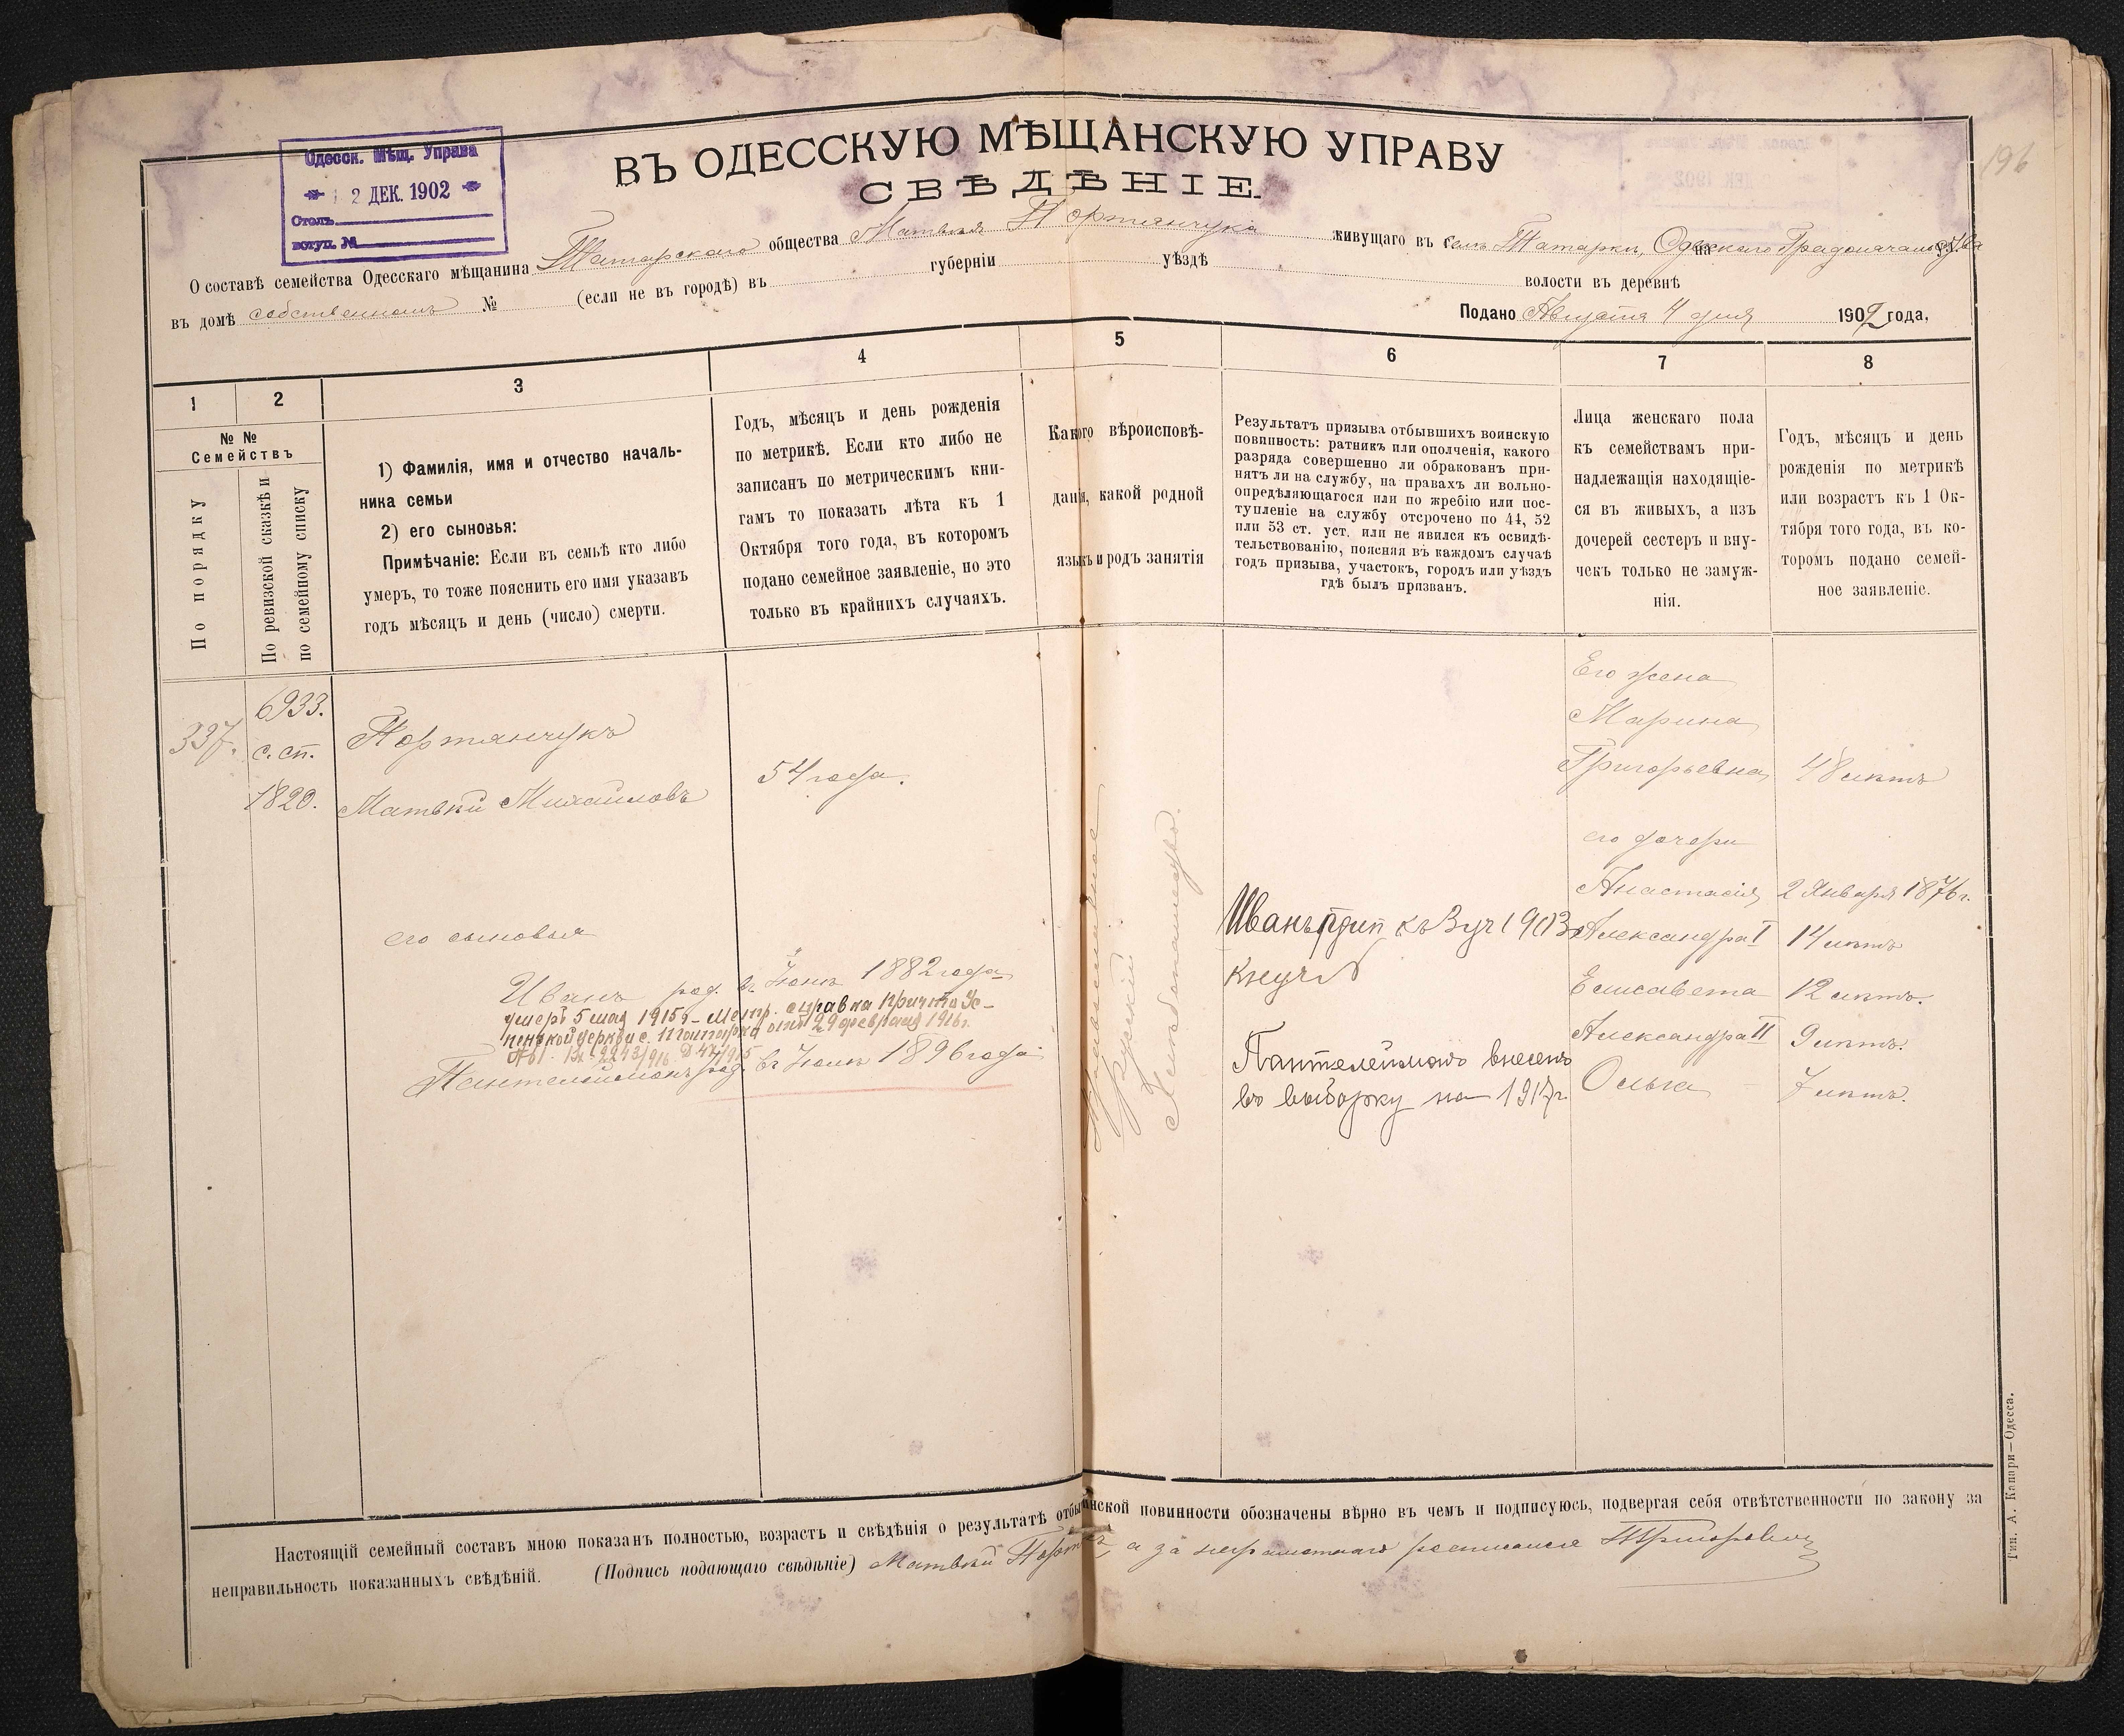 196
Одесск. Мѣщ. Управа
2 ДЕК. 1902
Столъ
вступ. №
ВЪ ОДЕССКУЮ МѢЩАНСКУЮ УПРАВУ
СВѢДѢНІЕ.
О составѣ семейства Одесскаго мѣщанина Татарскаго общества Матвѣя Портянчука живущаго въ селѣ Татарки, Одесскаго Градоначальства на ул.
въ домѣ собственномъ № (если не въ городѣ) въ губерніи уѣздѣ волости въ деревнѣ
Подано Августа 4 дня 1902 года,
1 2 3 4 5 6 7 8
№ №
Семействъ
По порядку
По ревизской сказкѣ и
по семейному списку
1) Фамилія, имя и отчество началь-
ника семьи
2) его сыновья:
Примѣчаніе: Если въ семьѣ кто либо
умеръ, то тоже пояснить его имя указавъ
годъ мѣсяцъ и день (число) смерти.
Годъ, мѣсяцъ и день рожденія
по метрикѣ. Если кто либо не
записанъ по метрическимъ кни-
гамъ то показать лѣта къ 1
Октября того года, въ которомъ
подано семейное заявленіе, но это
только въ крайнихъ случаяхъ.
Какого вѣроисповѣ-
данія, какой родной
языкъ и родъ занятія
Результатъ призыва отбывшихъ воинскую
повинность: ратникъ или ополченія, какого
разряда совершенно ли обракованъ при-
нятъ ли на службу, на правахъ ли вольно-
опредѣляющагося или по жребію или пос-
тупленіе на службу отсрочено по 44, 52
или 53 ст. уст. или не явился къ освидѣ-
тельствованію, поясняя въ каждомъ случаѣ
годъ призыва, участокъ, городъ или уѣздъ
гдѣ былъ призванъ.
Лица женскаго пола
къ семействамъ при-
надлежащія находящіе-
ся въ живыхъ, а изъ
дочерей сестеръ и вну-
чекъ только не замуж-
нія.
Годъ, мѣсяцъ и день
рожденія по метрикѣ
или возрастъ къ 1 Ок-
тября того года, въ ко-
торомъ подано семей-
ное заявленіе.
337.
6933.
с. сп.
1820.
Портянчукъ
Матвѣй Михайловъ
54 года.
его сыновья
Иванъ род. въ Іюнѣ 1882 года
умеръ 5 мая 1915 г. – Метр. справка причта Ус-
пенской церкви с. Татарка отъ 29 февраля 1916 г.
Вх. 2243/916
Пантелеймонъ род. въ Іюлѣ 1896 года
Православное
Русскій
Хлѣбопашество.
Иванъ къ 3 уч 1903
Пантелеймонъ внесенъ
въ выборку на 1917 г.
Его жена
Марина
Григорьевна 48 лѣтъ
его дочери
Анастасія 2 Января 1876 г.
Александра I 14 лѣтъ
Елисавета 12 лѣтъ.
Александра II 9 лѣтъ.
Ольга 7 лѣтъ.
Настоящій семейный составъ мною показанъ полностью, возрастъ и свѣдѣнія о результатѣ отбы инской повинности обозначены вѣрно въ чемъ и подписуюсь, подвергая себя отвѣтственности по закону за
неправильность показанныхъ свѣдѣній. (Подпись подающаго свѣдѣніе) Матвѣй а за неграмотнаго росписался
Тип. А. Капари—Одесса.